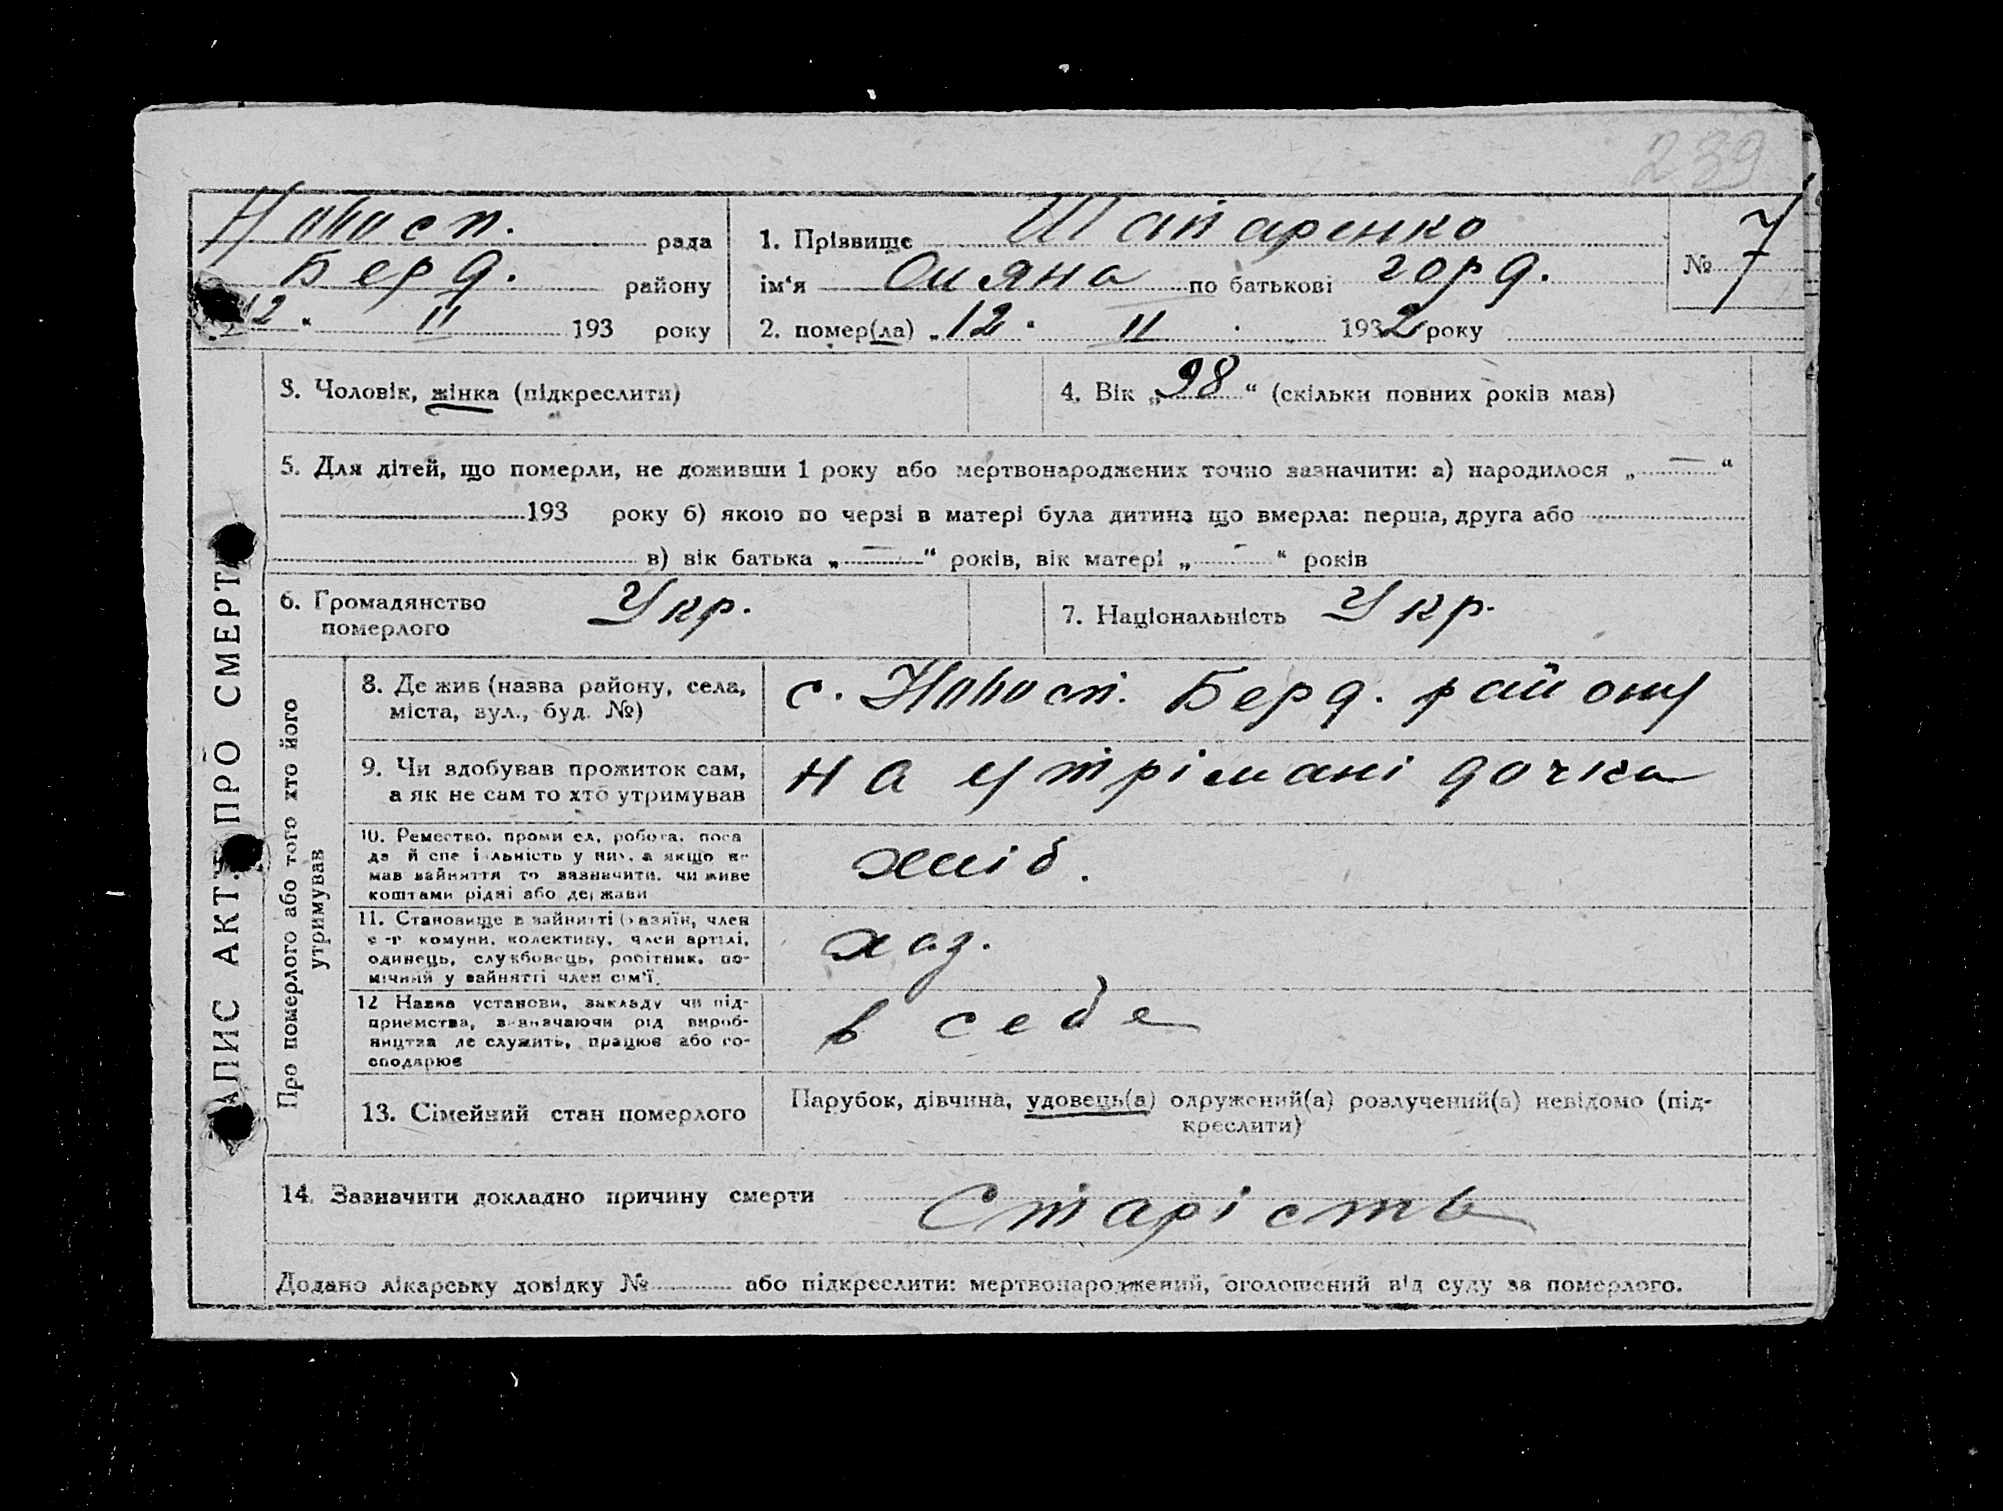 239
Новосп. рада
Берд. району
12 " II 193 року
1. Прізвище Шапаренко
ім'я Оляна по батькові горд.
2. помер(ла) „12" II 1932 року
№ 7
ЗАПИС АКТУ ПРО СМЕРТЬ
3. Чоловік, жінка (підкреслити)
4. Вік „98" (скільки повних років мав)
5. Для дітей, що померли, не доживши 1 року або мертвонароджених точно зазначити: а) народилося „ — "
193 року б) якою по черзі в матері була дитина що вмерла: перша, друга або
в) вік батька „ — " років, вік матері „ - " років
6. Громадянство померлого Укр.
7. Національність Укр.
Про померлого або того хто його утримував
8. Де жив (назва району, села,
міста, вул., буд. №)
с. Новосп. Берд. району
9. Чи здобував прожиток сам,
а як не сам то хто утримував
на утрімані дочка
10. Ремество, промисел, робота, поса
да й спеціяльність у них, а якщо не
мав зайняття то зазначити, чи живе
коштами рідні або держави
хліб.
11. Становище в зайнятті (хазяїн, член
с-г комуни, колективу, член артілі,
одинець, службовець, робітник, по-
мічний у зайнятті член сім'ї.
хаз.
12 Назва установи, закладу чи під-
приємства, зазначаючи рід вироб-
ництва де служить, працює або го-
сподарює
в себе
13. Сімейний стан померлого
Парубок, дівчина, удовець(а) одружений(а) розлучений(а) невідомо (під-
креслити)
14. Зазначити докладно причину смерти Старість
Додано лікарську довідку № або підкреслити: мертвонароджений, оголошений від суду за померлого.